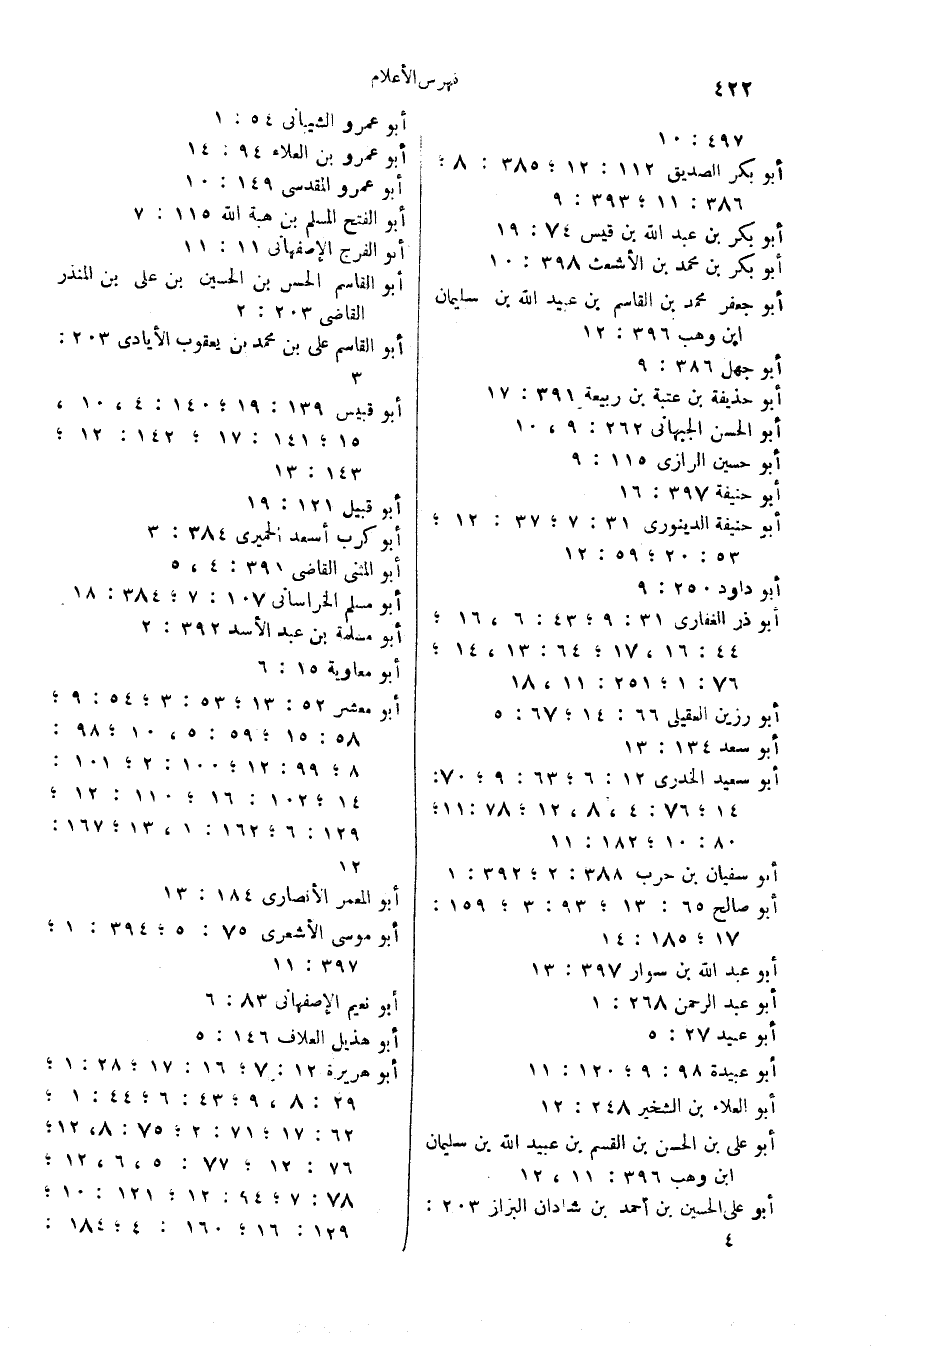 ٤٢٢
فهرس الأعلام
٤٩٧ : ١٠
أبو بكر الصديق ١١٢ : ١٢ ؛ ٣٨٥ : ٨ ؛
٣٨٦ : ١١ ؛ ٣٩٣ : ٩
أبو بكر بن عبد الله بن قيس ٧٤ : ١٩
أبو بكر بن محمد بن الأشعث ٣٩٨ : ١٠
أبو جعفر محمد بن القاسم بن عبيد الله بن سليمان
ابن وهب ٣٩٦ : ١٢
أبو جهل ٣٨٦ : ٩
أبو حذيفة بن عتبة بن ربيعة ٣٩١ : ١٧
أبو الحسن الجبهانى ٢٦٢ : ٩ ، ١٠
أبو حسين الرازى ١١٥ : ٩
أبو حنيفة ٣٩٧ : ١٦
أبو حنيفة الدينورى ٣١ : ٧ ؛ ٣٧ : ١٢ ؛
٥٣ : ٢٠ ؛ ٥٩ : ١٢
أبو داود ٢٥٠ : ٩
أبو ذر الغفارى ٣١ : ٩ ؛ ٤٣ : ٦ ، ١٦ ؛
٤٤ : ١٦ ، ١٧ ؛ ٦٤ : ١٣ ، ١٤ ؛
٧٦ : ١ ؛ ٢٥١ : ١١ ، ١٨
أبو رزين العقيلى ٦٦ : ١٤ ؛ ٦٧ : ٥
أبو سعد ١٣٤ : ١٣
أبو سعيد الخدرى ١٢ : ٦ ؛ ٦٣ : ٩ ؛ ٧٠ :
١٤ ؛ ٧٦ : ٤ ، ٨ ، ١٢ ؛ ٧٨ : ١١ ؛
٨٠ : ١٠ ؛ ١٨٢ : ١١
أبو سفيان بن حرب ٣٨٨ : ٢ ؛ ٣٩٢ : ١
أبو صالح ٦٥ : ١٣ ؛ ٩٣ : ٣ ؛ ١٥٩ :
١٧ ؛ ١٨٥ : ١٤
أبو عبد الله بن سوار ٣٩٧ : ١٣
أبو عبد الرحمن ٢٦٨ : ١
أبو عبيد ٢٧ : ٥
أبو عبيدة ٩٨ : ٩ ؛ ١٢٠ : ١١
أبو العلاء بن الشخير ٢٤٨ : ١٢
أبو على بن الحسن بن القسم بن عبيد الله بن سليمان
ابن وهب ٣٩٦ : ١١ ، ١٢
أبو على الحسين بن أحمد بن شاذان البزاز ٢٠٣ :
٤
أبو عمرو الشيبانى ٥٤ : ١
أبو عمرو بن العلاء ٩٤ : ١٤
أبو عمرو المقدسى ١٤٩ : ١٠
أبو الفتح المسلم بن هبة الله ١١٥ : ٧
أبو الفرج الإصفهانى ١١ : ١١
أبو القاسم الحسن بن الحسين بن على بن المنذر
القاضى ٢٠٣ : ٢
أبو القاسم على بن محمد بن يعقوب الأيادى ٢٠٣ :
٣
أبو قبيس ١٣٩ : ١٩ ؛ ١٤٠ : ٤ ، ١٠ ،
١٥ ؛ ١٤١ : ١٧ ؛ ١٤٢ : ١٢ ؛
١٤٣ : ١٣
أبو قبيل ١٢١ : ١٩
أبو كرب أسعد الحميرى ٣٨٤ : ٣
أبو المثنى القاضى ٣٩١ : ٤ ، ٥
أبو مسلم الخراسانى ١٠٧ : ٧ ؛ ٣٨٤ : ١٨
أبو مسلمة بن عبد الأسد ٣٩٢ : ٢
أبو معاوية ١٥ : ٦
أبو معشر ٥٢ : ١٣ ؛ ٥٣ : ٣ ؛ ٥٤ : ٩ ؛
٥٨ : ١٥ ؛ ٥٩ : ٥ ، ١٠ ؛ ٩٨ :
٨ ؛ ٩٩ : ١٢ ؛ ١٠٠ : ٢ ؛ ١٠١ :
١٤ ؛ ١٠٢ : ١٦ ؛ ١١٠ : ١٢ ؛
١٢٩ : ٦ ؛ ١٦٢ : ١ ، ١٣ ؛ ١٦٧ :
١٢
أبو المعمر الأنصارى ١٨٤ : ١٣
أبو موسى الأشعرى ٧٥ : ٥ ؛ ٣٩٤ : ١ ؛
٣٩٧ : ١١
أبو نعيم الإصفهانى ٨٣ : ٦
أبو هذيل العلاف ١٤٦ : ٥
أبو هريرة ١٢ : ٧ ؛ ١٦ : ١٧ ؛ ٢٨ : ١ ؛
٢٩ : ٨ ، ٩ ؛ ٤٣ : ٦ ؛ ٤٤ : ١ ؛
٦٢ : ١٧ ؛ ٧١ : ٢ ؛ ٧٥ : ٨ ، ١٢ ؛
٧٦ : ١٢ ؛ ٧٧ : ٥ ، ٦ ، ١٢ ؛
٧٨ : ٧ ؛ ٩٤ : ١٢ ؛ ١٢١ : ١٠ ؛
١٢٩ : ١٦ ؛ ١٦٠ : ٤ ؛ ١٨٤ :